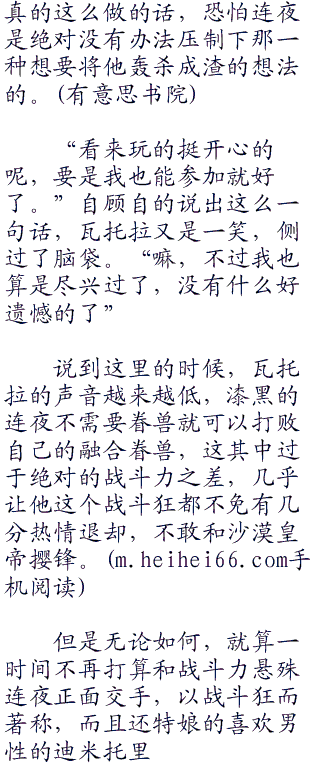 真的这么做的话，恐怕连夜
是绝对没有办法压制下那一
种想要将他轰杀成渣的想法
的。(有意思书院)
“看来玩的挺开心的
呢，要是我也能参加就好
了。”自顾自的说出这么一
句话，瓦托拉又是一笑，侧
过了脑袋。“嘛，不过我也
算是尽兴过了，没有什么好
遗憾的了”
说到这里的时候，瓦托
拉的声音越来越低，漆黑的
连夜不需要眷兽就可以打败
自己的融合眷兽，这其中过
于绝对的战斗力之差，几乎
让他这个战斗狂都不免有几
分热情退却，不敢和沙漠皇
帝撄锋。(m.heihei66.com手
机阅读)
但是无论如何，就算一
时间不再打算和战斗力悬殊
连夜正面交手，以战斗狂而
著称，而且还特娘的喜欢男
性的迪米托里